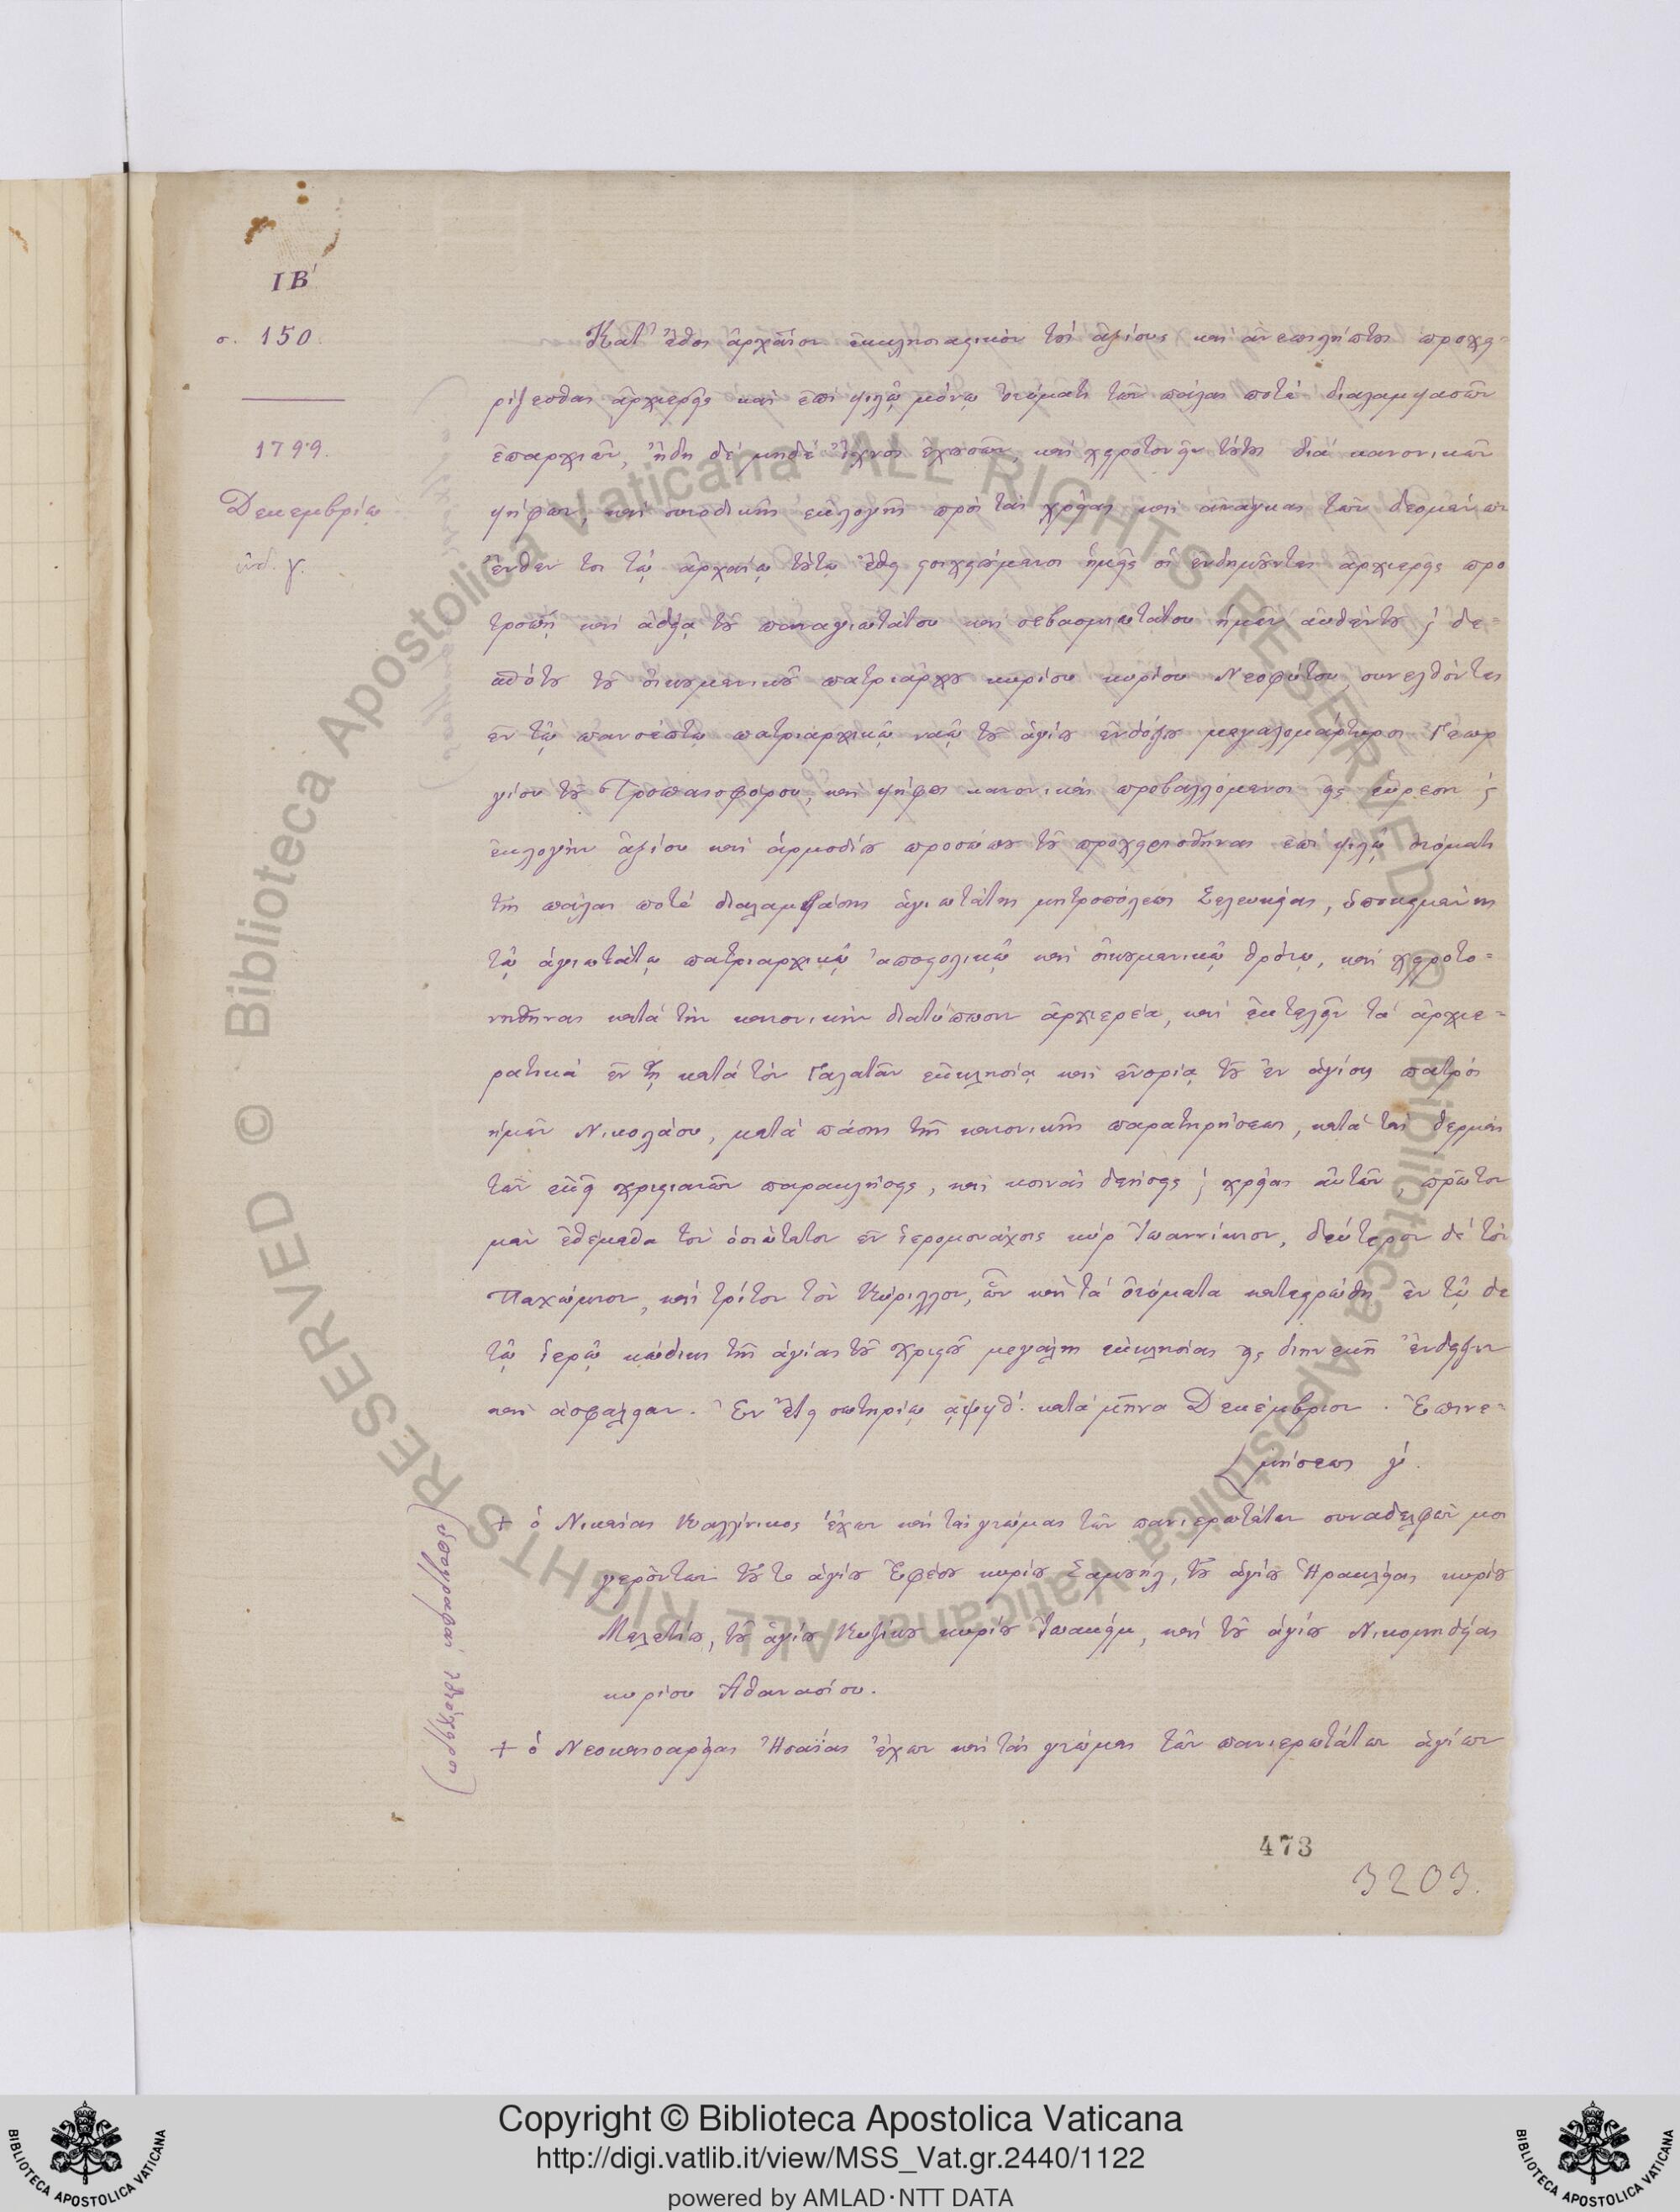 ΙΒ΄
σ. 150.
1799.
Δεκεμβρίῳ
ἰνδ. γ.
Κατ' ἔθος ἀρχαῖον ἐκκλησιαστικὸν τοὺς ἀξίους καὶ ἀνεπιλήπτους προχει-
ρίζεσθαι ἀρχιερεῖς καὶ ἐπὶ ψιλῷ μόνῳ ὀνόματι τῶν πάλαι ποτὲ διαλαμψασῶν
ἐπαρχιῶν, ἤδη δὲ μηδὲ ἴχνος ἐχουσῶν, καὶ χειροτονεῖν τούτους διὰ κανονικῶν
ψήφων, καὶ συνοδικῆς ἐκλογῆς πρὸς τὰς χρείας καὶ ἀνάγκας τῶν δεομένων
ἔνθεν τοι τῷ ἀρχαίῳ τούτῳ ἔθει στοιχούμενοι ἡμεῖς οἱ ἐνδημοῦντες ἀρχιερεῖς προ
τροπῇ καὶ ἀδείᾳ τοῦ παναγιωτάτου καὶ σεβασμιωτάτου ἡμῶν αὐθέντου καὶ δε-
σπότου τοῦ οἰκουμενικοῦ πατριάρχου κυρίου κυρίου Νεοφύτου, συνελθόντες
ἐν τῷ πανσέπτῳ πατριαρχικῷ ναῷ τοῦ ἁγίου ἐνδόξου μεγαλομάρτυρος Γεωρ
γίου τοῦ Τροπαιοφόρου, καὶ ψήφους κανονικὰς προβαλλόμενοι εἰς εὕρεσιν καὶ
ἐκλογὴν ἀξίου καὶ ἁρμοδίου προσώπου τοῦ προχειρισθῆναι ἐπὶ ψιλῷ ὀνόματι
τῆς πάλαι ποτὲ διαλαμψάσης ἁγιωτάτης μητροπόλεως Σελευκείας, ὑποκειμένης
τῷ ἁγιωτάτῳ πατριαρχικῷ ἀποστολικῷ καὶ οἰκουμενικῷ θρόνῳ, καὶ χειροτο-
νηθῆναι κατὰ τὴν κανονικὴν διατύπωσιν ἀρχιερέα, καὶ ἐκτελεῖν τὰ ἀρχιε-
ρατικὰ ἐν τῇ κατὰ τὸν Γαλατᾶν ἐκκλησίᾳ καὶ ἐνορίᾳ τοῦ ἐν ἁγίοις πατρὸς
ἡμῶν Νικολάου, μετὰ πάσης τῆς κανονικῆς παρατηρήσεως, κατὰ τὰς θερμὰς
τῶν ἐκεῖ χριστιανῶν παρακλήσεις, καὶ κοινὰς δεήσεις καὶ χρείας αὐτῶν, πρῶτον
μὲν ἐθέμεθα τὸν ὁσιώτατον ἐν ἱερομονάχοις κὺρ Ἰωαννίκιον, δεύτερον δὲ τὸν
Παχώμιον, καὶ τρίτον τὸν Κύριλλον, ὧν καὶ τὰ ὀνόματα κατεστρώθη ἐν τῷ δε
τῷ ἱερῷ κώδικι τῆς ἁγίας τοῦ Χριστοῦ μεγάλης ἐκκλησίας εἰς διηνεκῆ ἔνδειξιν
καὶ ἀσφάλειαν. Ἐν ἔτει σωτηρίῳ ͵αψϟθ΄. κατὰ μῆνα Δεκέμβριον. Ἐπινε-
μήσεως γ΄.
+ ὁ Νικαίας Καλλίνικος ἔχων καὶ τὰς γνώμας τῶν πανιερωτάτων συναδελφῶν μου
γερόντων τοῦ τε ἁγίου Ἐφέσου κυρίου Σαμουήλ, τοῦ ἁγίου Ἡρακλείας κυρίου
Μελετίου, τοῦ ἁγίου Κυζίκου κυρίου Ἰωακείμ, καὶ τοῦ ἁγίου Νικομηδείας
κυρίου Ἀθανασίου.
+ ὁ Νεοκαισαρείας Ἡσαΐας ἔχων καὶ τὰς γνώμας τῶν πανιερωτάτων ἁγίων
(ὑπογραφαὶ ἰδιόχειροι)
473
3203.
© Biblioteca Apostolica Vaticana ALL RIGHTS RESERVED
© Biblioteca Apostolica Vaticana ALL RIGHTS RESERVED
BIBLIOTECA APOSTOLICA VATICANA
Copyright © Biblioteca Apostolica Vaticana
http://digi.vatlib.it/view/MSS_Vat.gr.2440/1122
powered by AMLAD・NTT DATA
BIBLIOTECA APOSTOLICA VATICANA